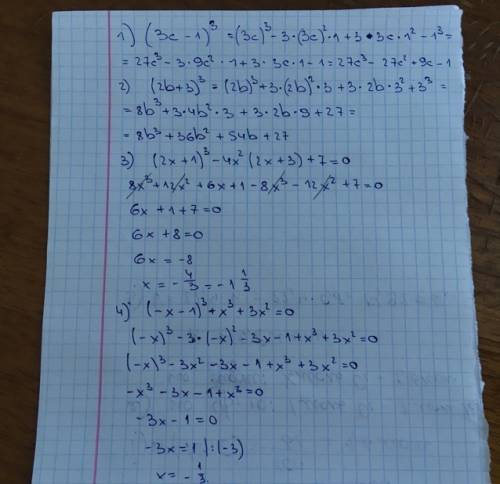 1) (3c - 1)³ = (3c)³ - 3·(3c)²·1 + 3·3c·1² - 1³ =
= 27c³ - 3·9c²·1 + 3·3c·1 - 1 = 27c³ - 27c² + 9c - 1
2) (2b+3)³ = (2b)³ + 3·(2b)²·3 + 3·2b·3² + 3³ =
= 8b³ + 3·4b²·3 + 3·2b·9 + 27 =
= 8b³ + 36b² + 54b + 27
3) (2x+1)³ - 4x²(2x+3) + 7 = 0
8x³ + 12x² + 6x + 1 - 8x³ - 12x² + 7 = 0
6x + 1 + 7 = 0
6x + 8 = 0
6x = -8
x = -4/3 = -1 1/3
4) (-x - 1)³ + x³ + 3x² = 0
(-x)³ - 3·(-x)² - 3x - 1 + x³ + 3x² = 0
(-x)³ - 3x² - 3x - 1 + x³ + 3x² = 0
-x³ - 3x - 1 + x³ = 0
-3x - 1 = 0
-3x = 1 |:(-3)
x = -1/3